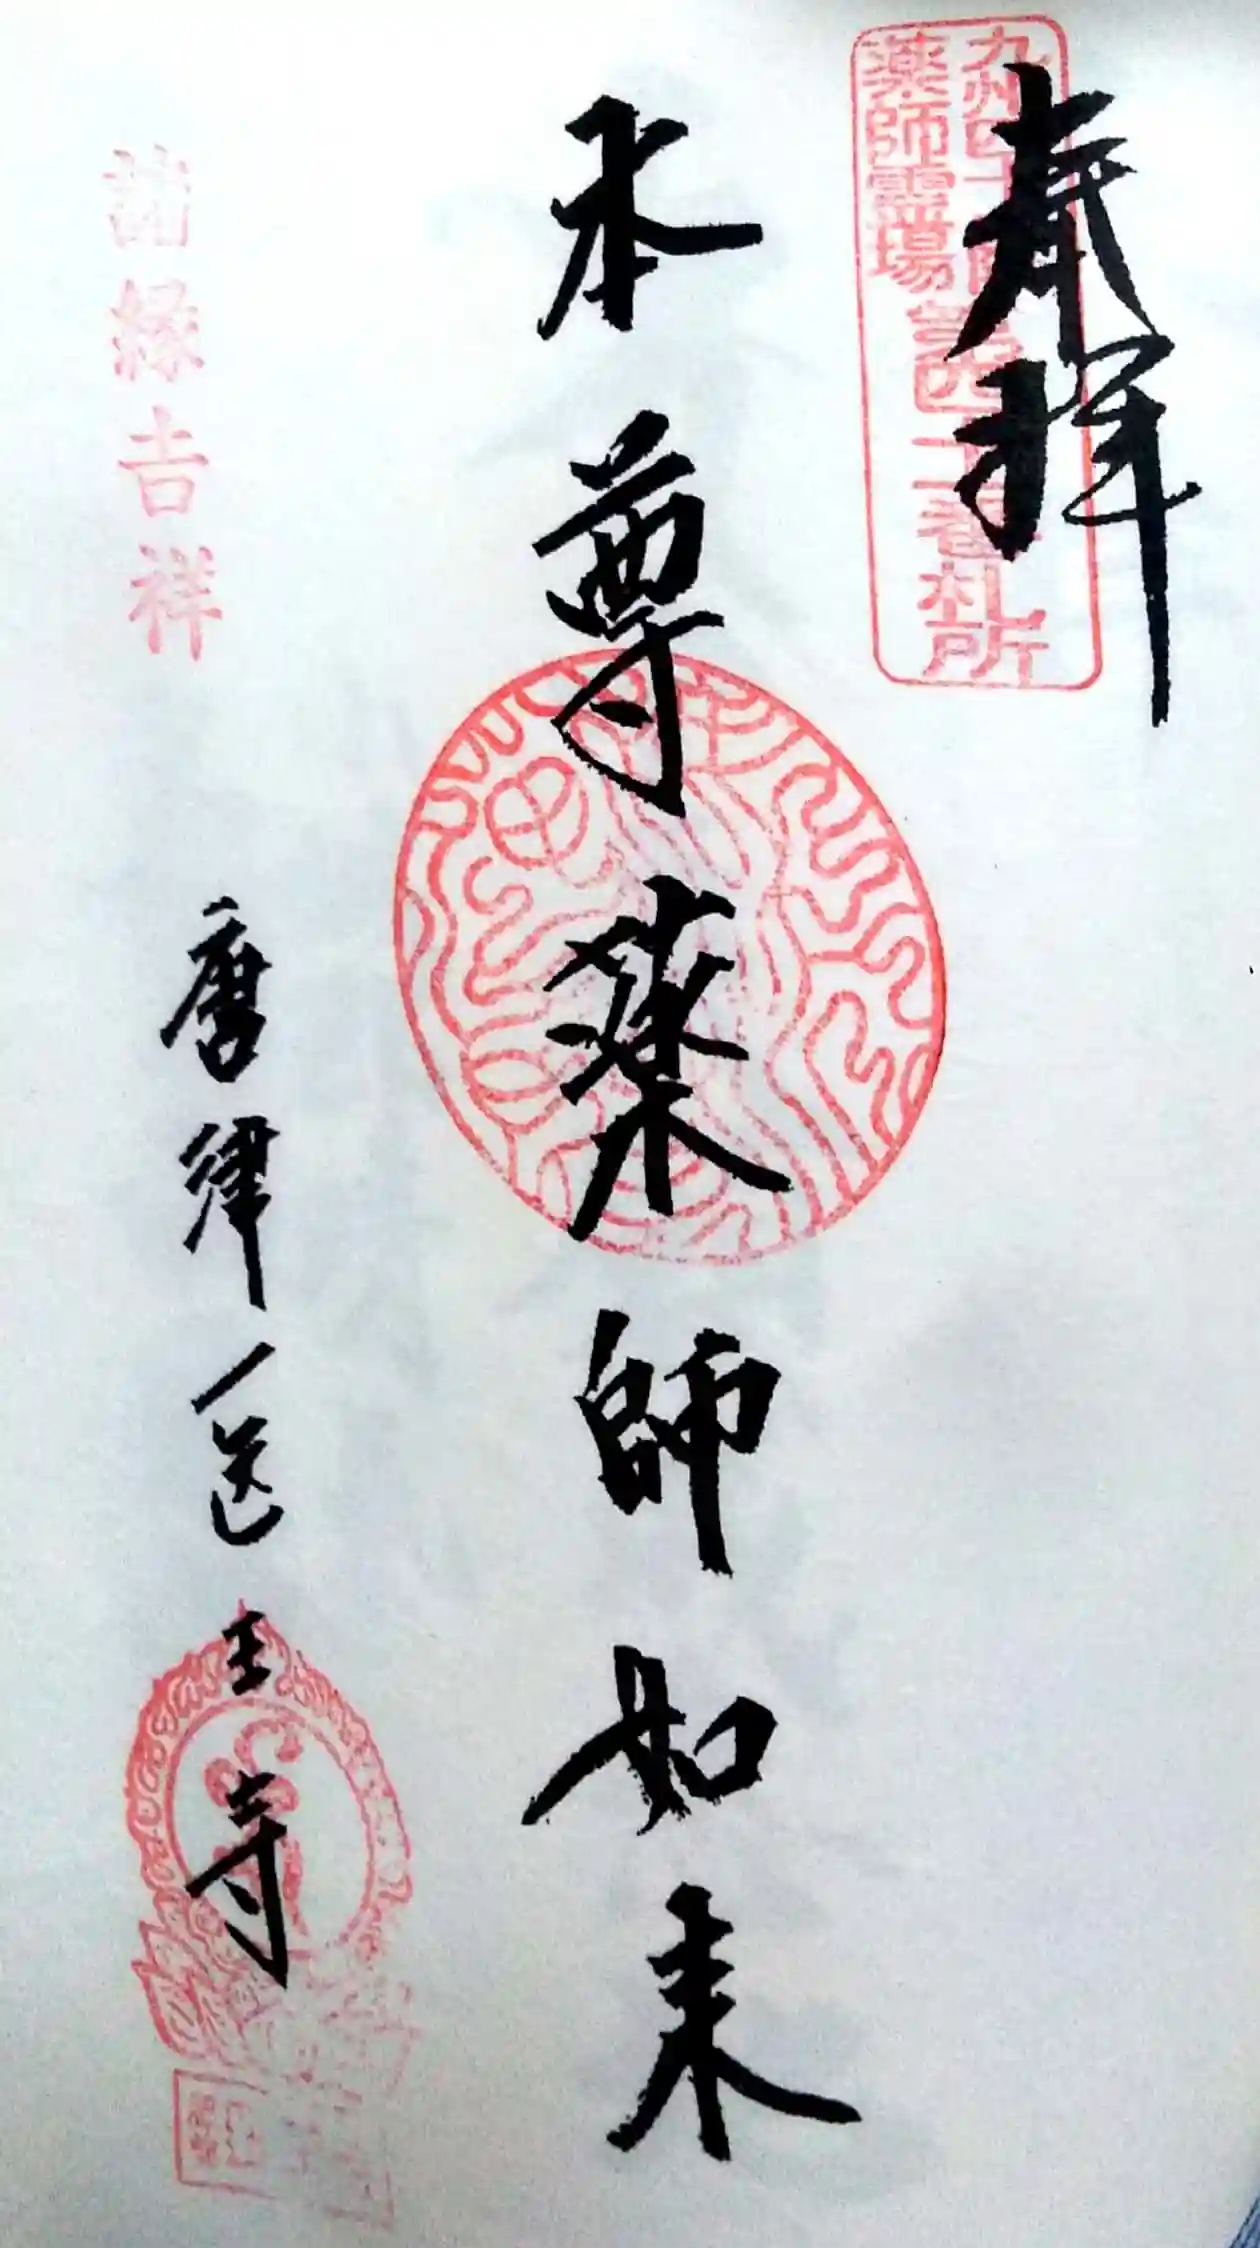 奉拝
九州四十九院
薬師霊場
第四十番札所
本尊薬師如来
諸縁吉祥
唐津医王寺